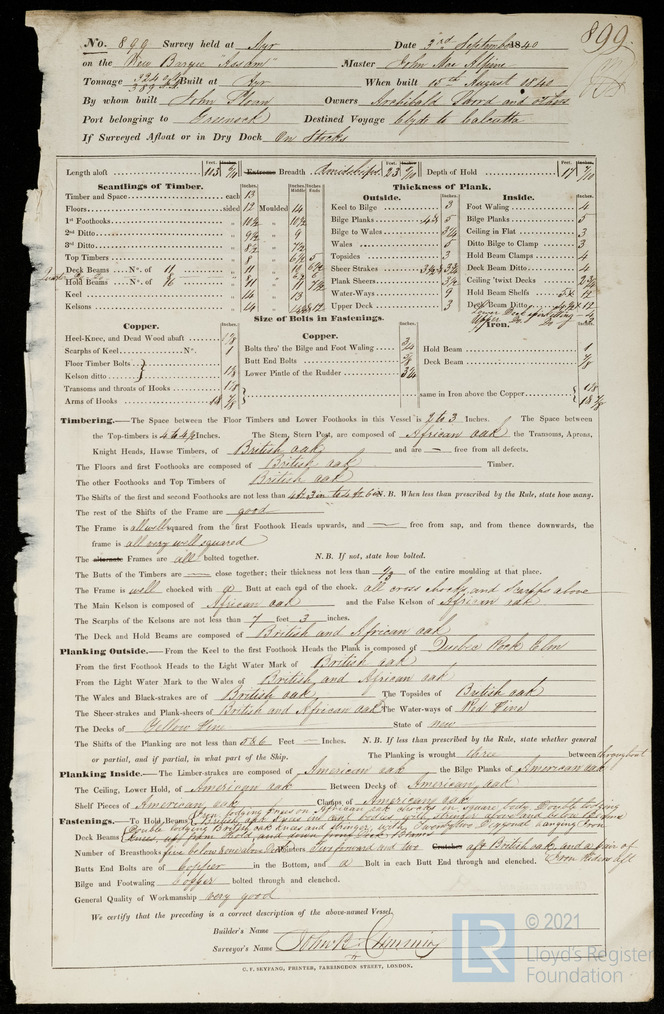 No. 899 Survey held at Ayr Date 3rd September 1840
899
on the New Barque "Assam" Master John Mac Alpine
Tonnage Built at Ayr When built 15th August 1840
By whom built John Sloan Owners Archibald and others
Port belonging to Greenock Destined Voyage Clyde to Calcutta
If Surveyed Afloat or in Dry Dock On Stocks
Length aloft 113 7/10 Extreme Breadth Amidships 23 7/10 Depth of Hold 17 7/10
Scantlings of Timber. Thickness of Plank.
Outside. Inside.
Timber and Space each 13
Floors sided 12 Moulded 14
1st Foothooks 10½ 10½
2nd Ditto 9½ 9
3rd Ditto 8½ 7½
Top Timbers 8 6½ 5
Deck Beams No. of 11 11
Hold Beams No. of
Keel 14 13
Kelsons 14
Keel to Bilge 3
Bilge Planks 5
Bilge to Wales 3¼
Wales 5
Topsides 3
Sheer Strakes
Plank Sheers 3½
Water-Ways 9
Upper Deck 3
Foot Waling 4
Bilge Planks 5
Ceiling in Flat 3
Ditto Bilge to Clamp 3
Hold Beam Clamps 4
Deck Beam Ditto 4
Ceiling 'twixt Decks
Hold Beam Shelfs 5 x 12
Deck Beam Ditto
Size of Bolts in Fastenings.
Copper. Copper. Iron.
Heel-Knee, and Dead Wood abaft 1⅛
Scarphs of Keel No. 1
Floor Timber Bolts
Kelson ditto 1⅛
Transoms and throats of Hooks 1⅛
Arms of Hooks
Bolts thro' the Bilge and Foot Waling
Butt End Bolts
Lower Pintle of the Rudder
Hold Beam 1
Deck Beam ⅞
same in Iron above the Copper
Timbering.—The Space between the Floor Timbers and Lower Foothooks in this Vessel is 2 to 3 Inches. The Space between
the Top-timbers is 4 to 4½ Inches. The Stem, Stern Post, are composed of African oak the Transoms, Aprons,
Knight Heads, Hawse Timbers, of British oak and are — free from all defects.
The Floors and first Foothooks are composed of British oak Timber.
The other Foothooks and Top Timbers of British oak
The Shifts of the first and second Foothooks are not less than 4 ft 3 in to 4 ft 6 in N. B. When less than prescribed by the Rule, state how many.
The rest of the Shifts of the Frame are good
The Frame is all well squared from the first Foothook Heads upwards, and — free from sap, and from thence downwards, the
frame is all very well squared
The alternate Frames are all bolted together. N. B. If not, state how bolted.
The Butts of the Timbers are — close together; their thickness not less than ⅓ of the entire moulding at that place.
The Frame is well chocked with a Butt at each end of the chock. all cross chocks and scarphs above
The Main Kelson is composed of African oak and the False Kelson of African oak
The Scarphs of the Kelsons are not less than 7 feet 3 inches.
The Deck and Hold Beams are composed of British and African oak
Planking Outside.—From the Keel to the first Foothook Heads the Plank is composed of Quebec Rock Elm
From the first Foothook Heads to the Light Water Mark of British oak
From the Light Water Mark to the Wales of British and African oak
The Wales and Black-strakes are of British oak The Topsides of British oak
The Sheer-strakes and Plank-sheers of British and African oak The Water-ways of Red Pine
The Decks of Yellow Pine State of new
The Shifts of the Planking are not less than 5 & 6 Feet — Inches. N. B. If less than prescribed by the Rule, state whether general
or partial, and if partial, in what part of the Ship. The Planking is wrought three between throughout
Planking Inside.—The Limber-strakes are composed of American oak the Bilge Planks of American oak
The Ceiling, Lower Hold, of American oak Between Decks of American oak
Shelf Pieces of American oak Clamps of American oak
Fastenings.—To Hold Beams
Deck Beams Double lodging British oak knees and stringer, with Twenty two Diagonal hanging Iron
Number of Breasthooks five below Pointers Two forward and two Crutches aft British oak and a pair of
Butts End Bolts are of Copper in the Bottom, and a Bolt in each Butt End through and clenched. Iron Riders aft
Bilge and Footwaling Copper bolted through and clenched.
General Quality of Workmanship very good
We certify that the preceding is a correct description of the above-named Vessel,
Builder's Name
Surveyor's Name
C. F. SEYFANG, PRINTER, FARRINGDON STREET, LONDON.
LR © 2021
Lloyd's Register
Foundation